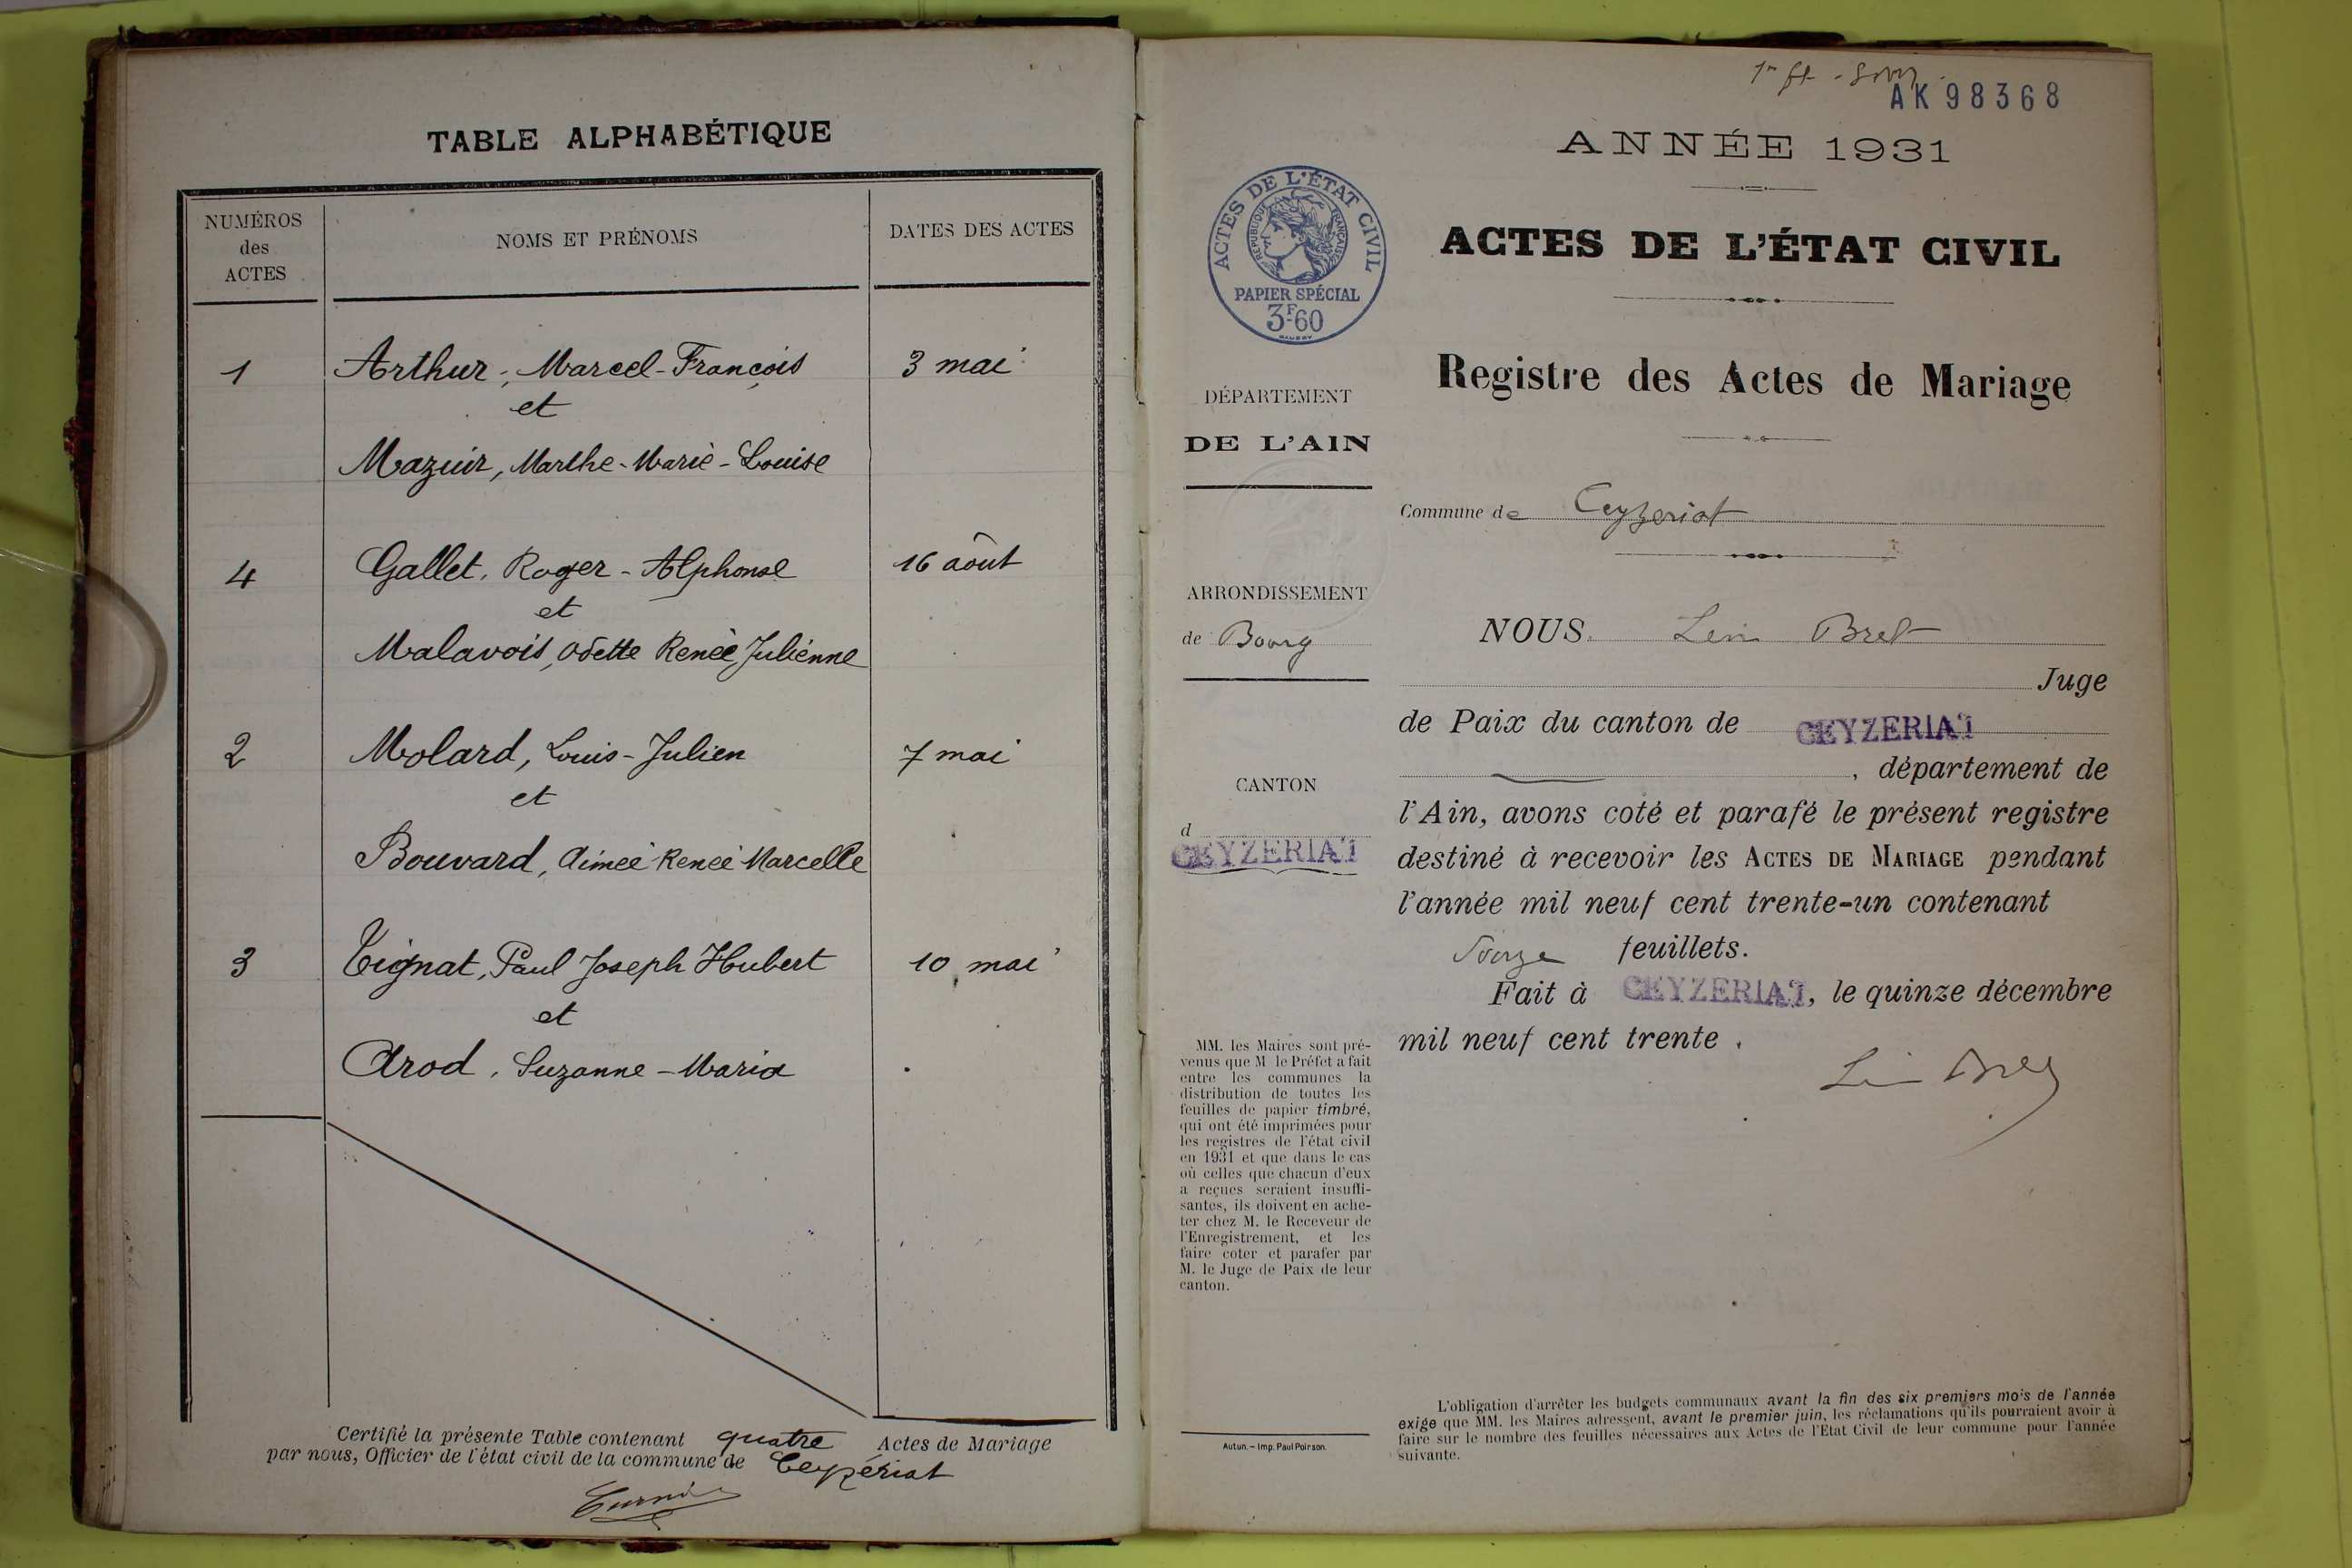 TABLE ALPHABÉTIQUE
NUMÉROS
des
ACTES
NOMS ET PRÉNOMS
DATES DES ACTES
1 Arthur, Marcel-François 3 mai
et
Mazuir, Marthe-Marie-Louise
4 Gallet, Roger-Alphonse 16 août
et
Malavois, Odette Renée Julienne
2 Molard, Louis-Julien 7 mai
et
Bouvard, Aimée Renée Marcelle
3 Tignat, Paul Joseph Hubert 10 mai
et
Arod, Suzanne-Maria
Certifié la présente Table contenant quatre Actes de Mariage
par nous, Officier de l'état civil de la commune de Ceyzériat
AK 98368
ANNÉE 1931
ACTES DE L'ÉTAT CIVIL
RÉPUBLIQUE FRANÇAISE
PAPIER SPÉCIAL
3F60
ACTES DE L'ÉTAT CIVIL
Registre des Actes de Mariage
DÉPARTEMENT
DE L'AIN
Commune de Ceyzeriat
ARRONDISSEMENT
de Bourg
CANTON
d
CEYZERIAT
NOUS Bret
Juge
de Paix du canton de CEYZERIAT
, département de
l'Ain, avons coté et parafé le présent registre
destiné à recevoir les ACTES DE MARIAGE pendant
l'année mil neuf cent trente-un contenant
feuillets.
Fait à CEYZERIAT, le quinze décembre
mil neuf cent trente.
MM. les Maires sont pré-
venus que M le Préfet a fait
entre les communes la
distribution de toutes les
feuilles de papier timbré,
qui ont été imprimées pour
les registres de l'état civil
en 1931 et que dans le cas
où celles que chacun d'eux
a reçues seraient insuffi-
santes, ils doivent en ache-
ter chez M. le Receveur de
l'Enregistrement, et les
faire coter et parafer par
M. le Juge de Paix de leur
canton.
Autun. – Imp. Paul Poirson.
L'obligation d'arrêter les budgets communaux avant la fin des six premiers mois de l'année
exige que MM. les Maires adressent, avant le premier juin, les réclamations qu'ils pourraient avoir à
faire sur le nombre des feuilles nécessaires aux Actes de l'Etat Civil de leur commune pour l'année
suivante.